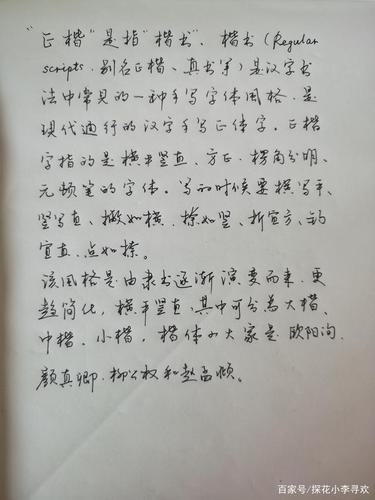 “正楷”是指“楷书”、楷书(Regular
scripts、别名正楷、真书等)是汉字书
法中常见的一种手写字体风格、是
现代通行的汉字手写正体字。正楷
字指的是横平竖直、方正、楞角分明、
无顿笔的字体。写的时候要横写平、
竖写直、撇如横、捺如竖、折宜方、钩
宜直、点如捺。
该风格是由隶书逐渐演变而来、更
趋简化，横平竖直，其中可分为大楷、
中楷、小楷，楷体四大家是欧阳询、
颜真卿、柳公权和赵孟頫。
百家号/探花小李寻欢